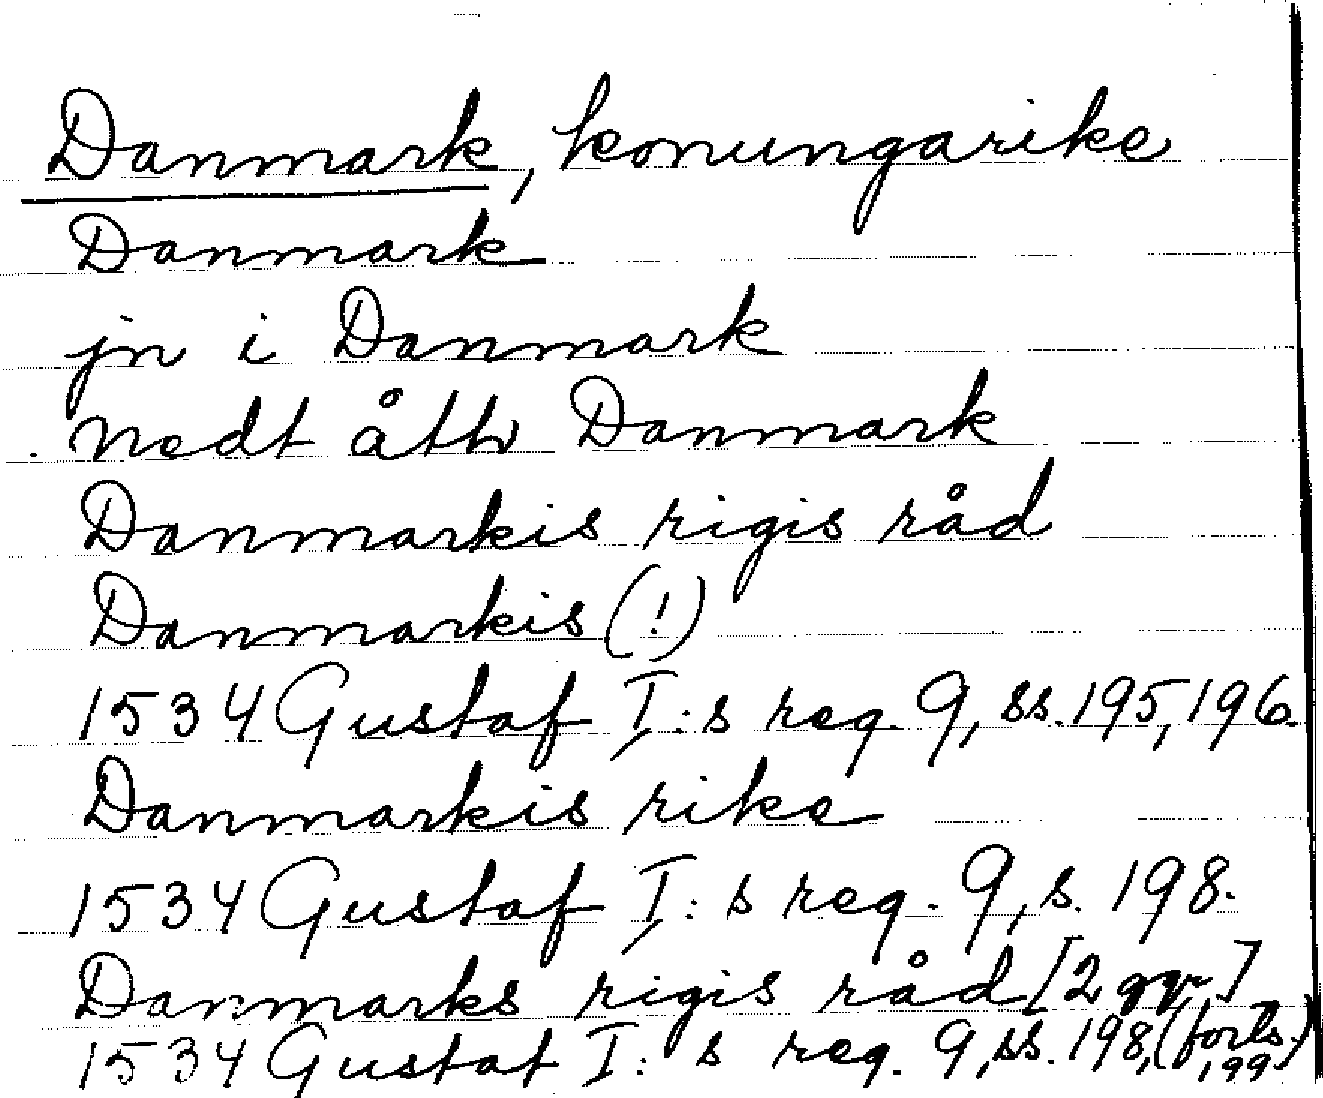 Danmark, konungarike
Danmark
jn i Danmark
nedt åth Danmark
Danmarkis rigis råd
Danmarkis (!)
1534 Gustaf I:s reg. 9, ss. 195, 196.
Danmarkis rike
1534 Gustaf I:s reg. 9, s. 198.
Danmarks rigis råd [2 ggr]
1534 Gustaf I:s reg. 9, ss. 198, 199. (forts.)